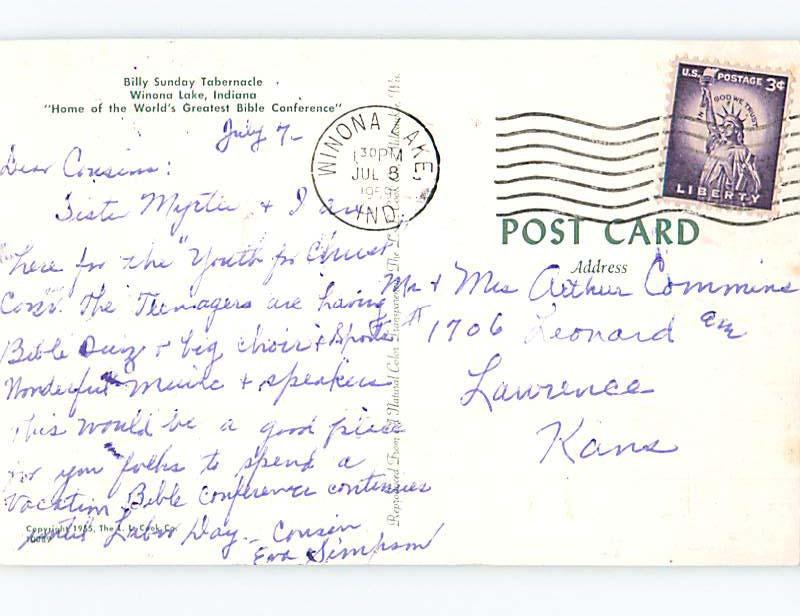 Billy Sunday Tabernacle
Winona Lake, Indiana
"Home of the World's Greatest Bible Conference"
July 7-
Dear Cousins:
Sister Myrtle + I are
here for the "Youth for Christ
Conv. The Teenagers are having
Bible Quiz + big choir + Sports
Wonderful music + speakers
This would be a good place
for you folks to spend a
Vacation. Bible Conference continues
until Labor Day. Cousin
Eva Simpson
Copyright 1955, The L. L. Cook Co.
WINONA LAKE
1 30PM
JUL 8
1959
IND.
U.S. POSTAGE 3¢
IN GOD WE TRUST
LIBERTY
POST CARD
Address
Mr + Mrs Arthur Commins
1706 Leonard
Lawrence
Kans
Reproduced From Natural Color Transparency The L. L. Cook